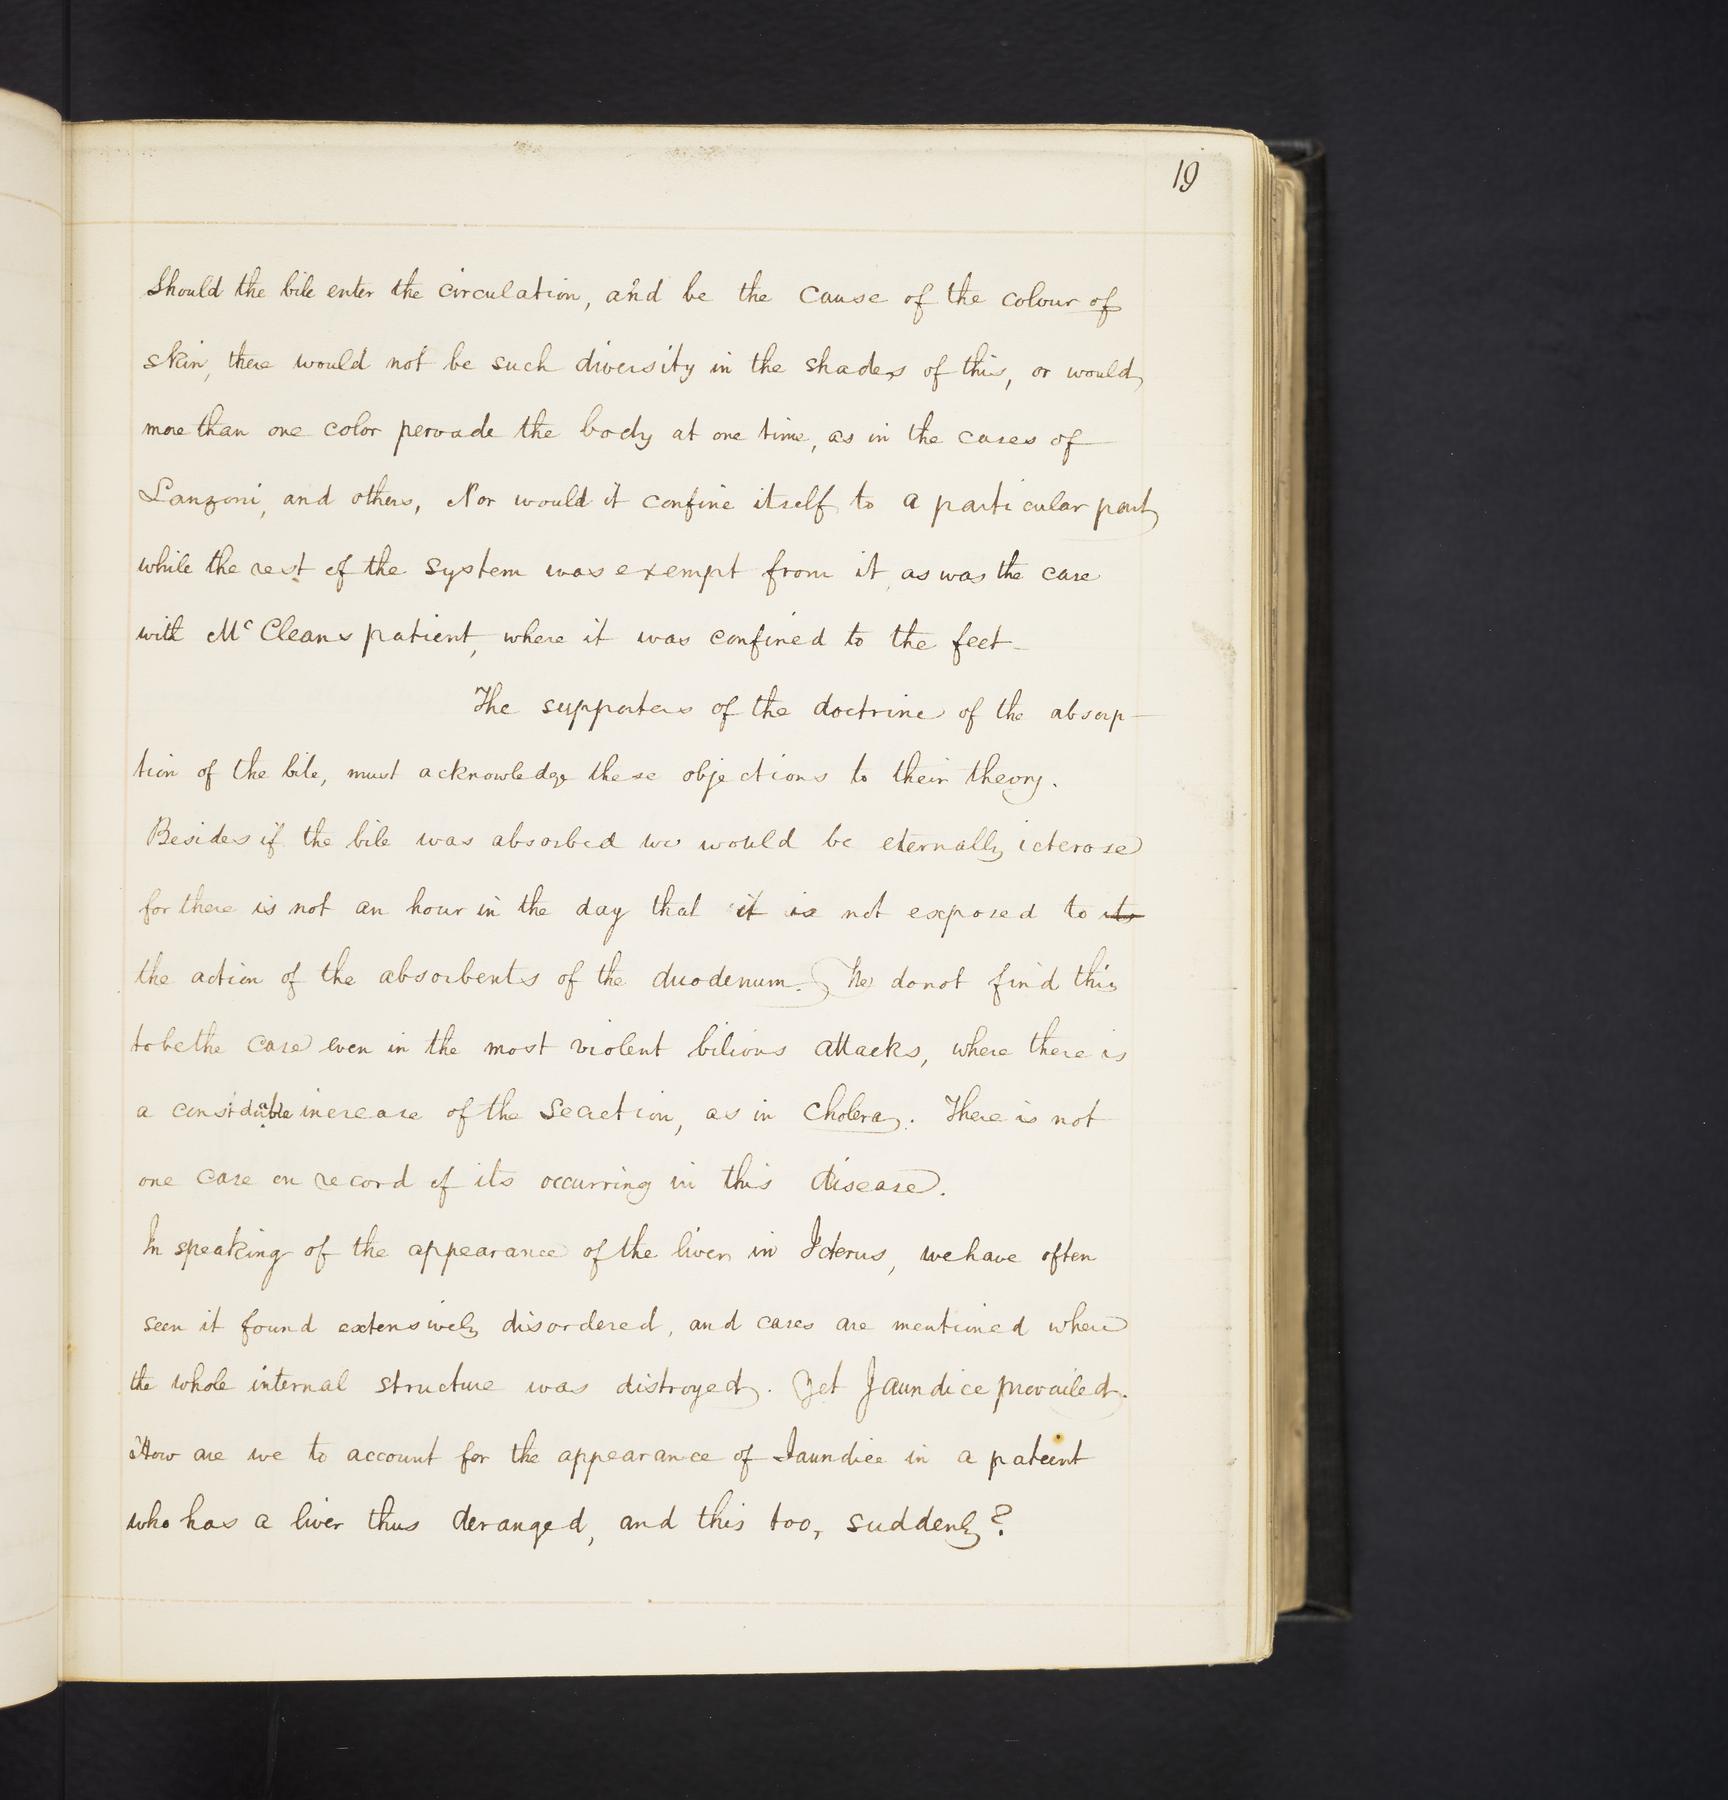 19
Should the bile enter the circulation, and be the cause of the colour of
skin, there would not be such diversity in the shades of this, or would
more than one color pervade the body at one time, as in the cases of
Lanzoni, and others, Nor would it confine itself to a particular part
while the rest of the system was exempt from it, as was the case
with Mc Cleans patient, where it was confined to the feet-
The supporters of the doctrine of the absorp-
tion of the bile, must acknowledge these objections to their theory.
Besides if the bile was absorbed we would be eternally icterose
for there is not an hour in the day that it is not exposed to its
the action of the absorbents of the duodenum. We do not find this
to be the case even in the most violent bilious attacks, where there is
a considerable increase of the secretion, as in cholera. There is not
one case on record of its occurring in this disease.
In speaking of the appearance of the liver in Icterus, we have often
seen it found extensively disordered, and cases are mentioned where
the whole internal structure was distroyed. Yet Jaundice prevailed.
How are we to account for the appearance of Jaundice in a pateint
who has a liver thus deranged, and this too, suddenly?